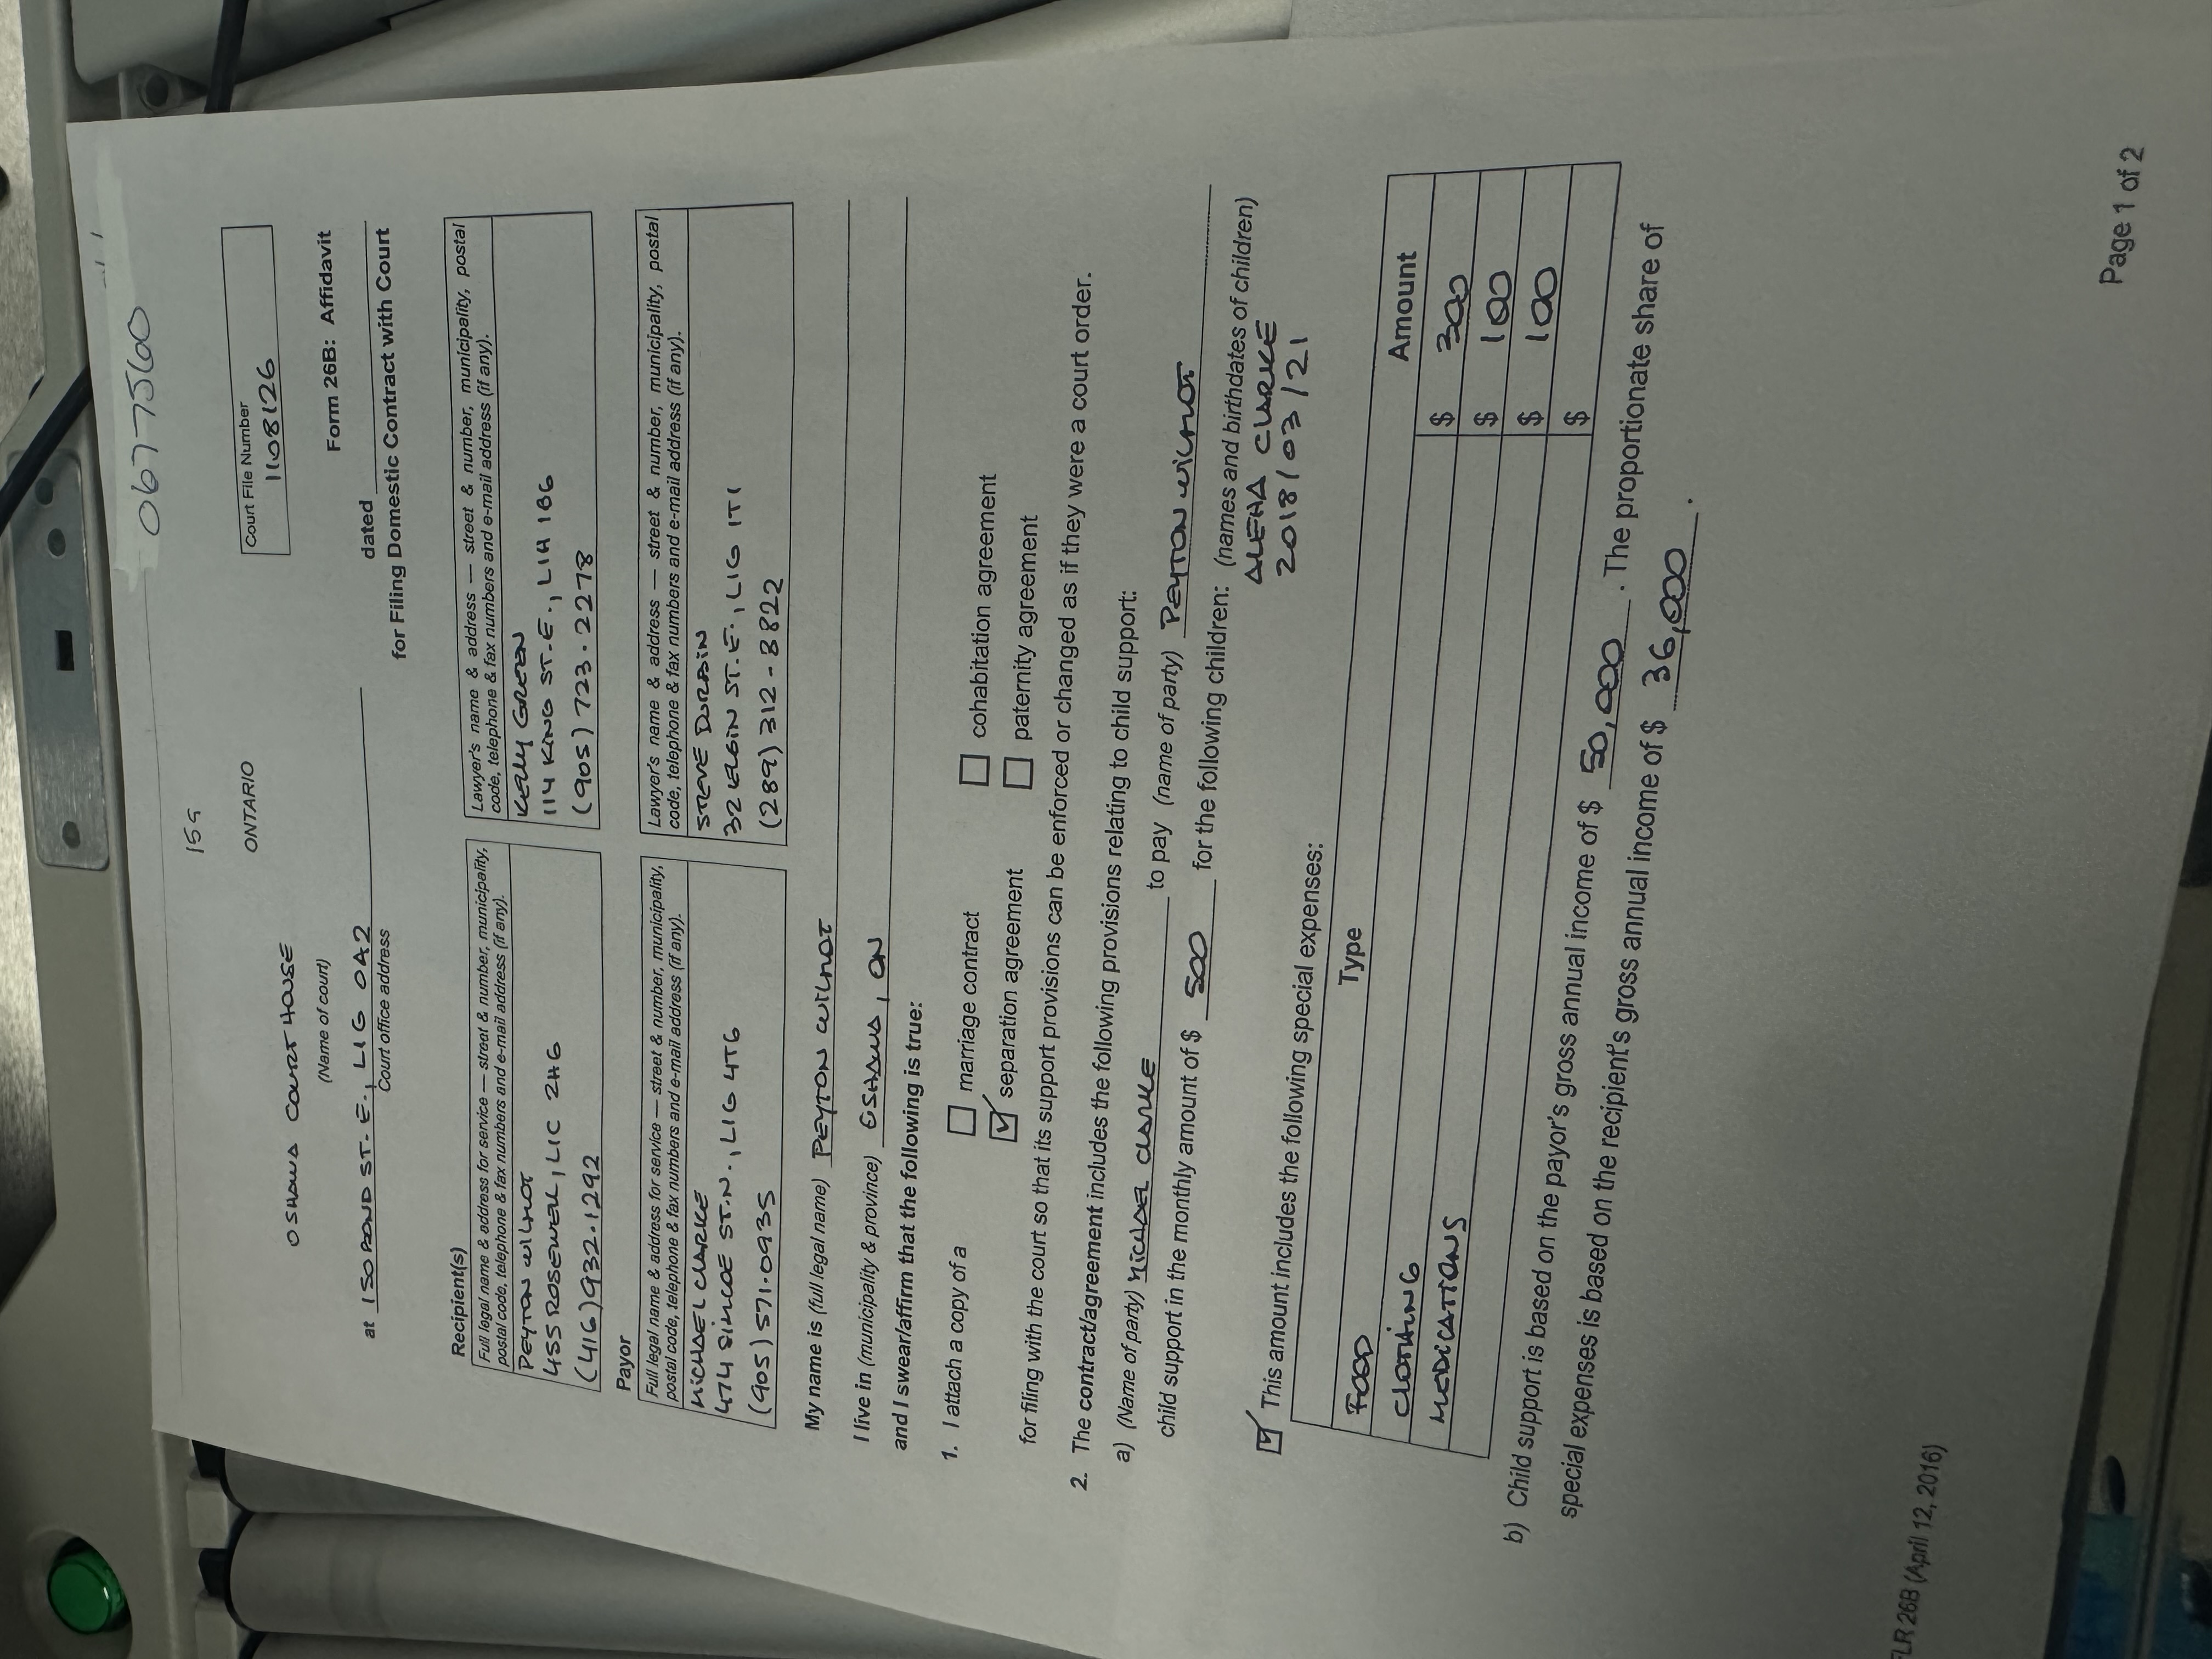 0677560
159
ONTARIO
Court File Number
1108126
OSHAWA COURTHOUSE
(Name of court)
Form 26B: Affidavit
at 150 BOND ST. E., L1G 0A2
Court office address
dated
for Filing Domestic Contract with Court
Recipient(s)
Full legal name & address for service — street & number, municipality, postal code, telephone & fax numbers and e-mail address (if any).
PEYTON WILMOT
455 ROSEWELL, L1C 2H6
(416)932.1292
Lawyer's name & address — street & number, municipality, postal code, telephone & fax numbers and e-mail address (if any).
KELLY GREEN
114 KING ST. E., L1H 1B6
(905) 723.2278
Payor
Full legal name & address for service — street & number, municipality, postal code, telephone & fax numbers and e-mail address (if any).
MICHAEL CLARKE
474 SIMCOE ST.N., L1G 4T6
(905) 571.0935
Lawyer's name & address — street & number, municipality, postal code, telephone & fax numbers and e-mail address (if any).
STEVE DURBIN
32 ELGIN ST. E., L1G 1T1
(289) 312-8822
My name is (full legal name) PEYTON WILMOT
I live in (municipality & province) OSHAWA, ON
and I swear/affirm that the following is true:
1. I attach a copy of a
marriage contract
cohabitation agreement
separation agreement
paternity agreement
for filing with the court so that its support provisions can be enforced or changed as if they were a court order.
2. The contract/agreement includes the following provisions relating to child support:
a) (Name of party) MICHAEL CLARKE to pay (name of party) PEYTON WILMOT
child support in the monthly amount of $ 500 for the following children: (names and birthdates of children)
ALEHA CLARKE
2018/03/21
This amount includes the following special expenses:
Type
Amount
FOOD $ 300
CLOTHING $ 100
MEDICATIONS $ 100
$
b) Child support is based on the payor's gross annual income of $ 50,000. The proportionate share of
special expenses is based on the recipient's gross annual income of $ 36,000.
FLR 26B (April 12, 2016)
Page 1 of 2